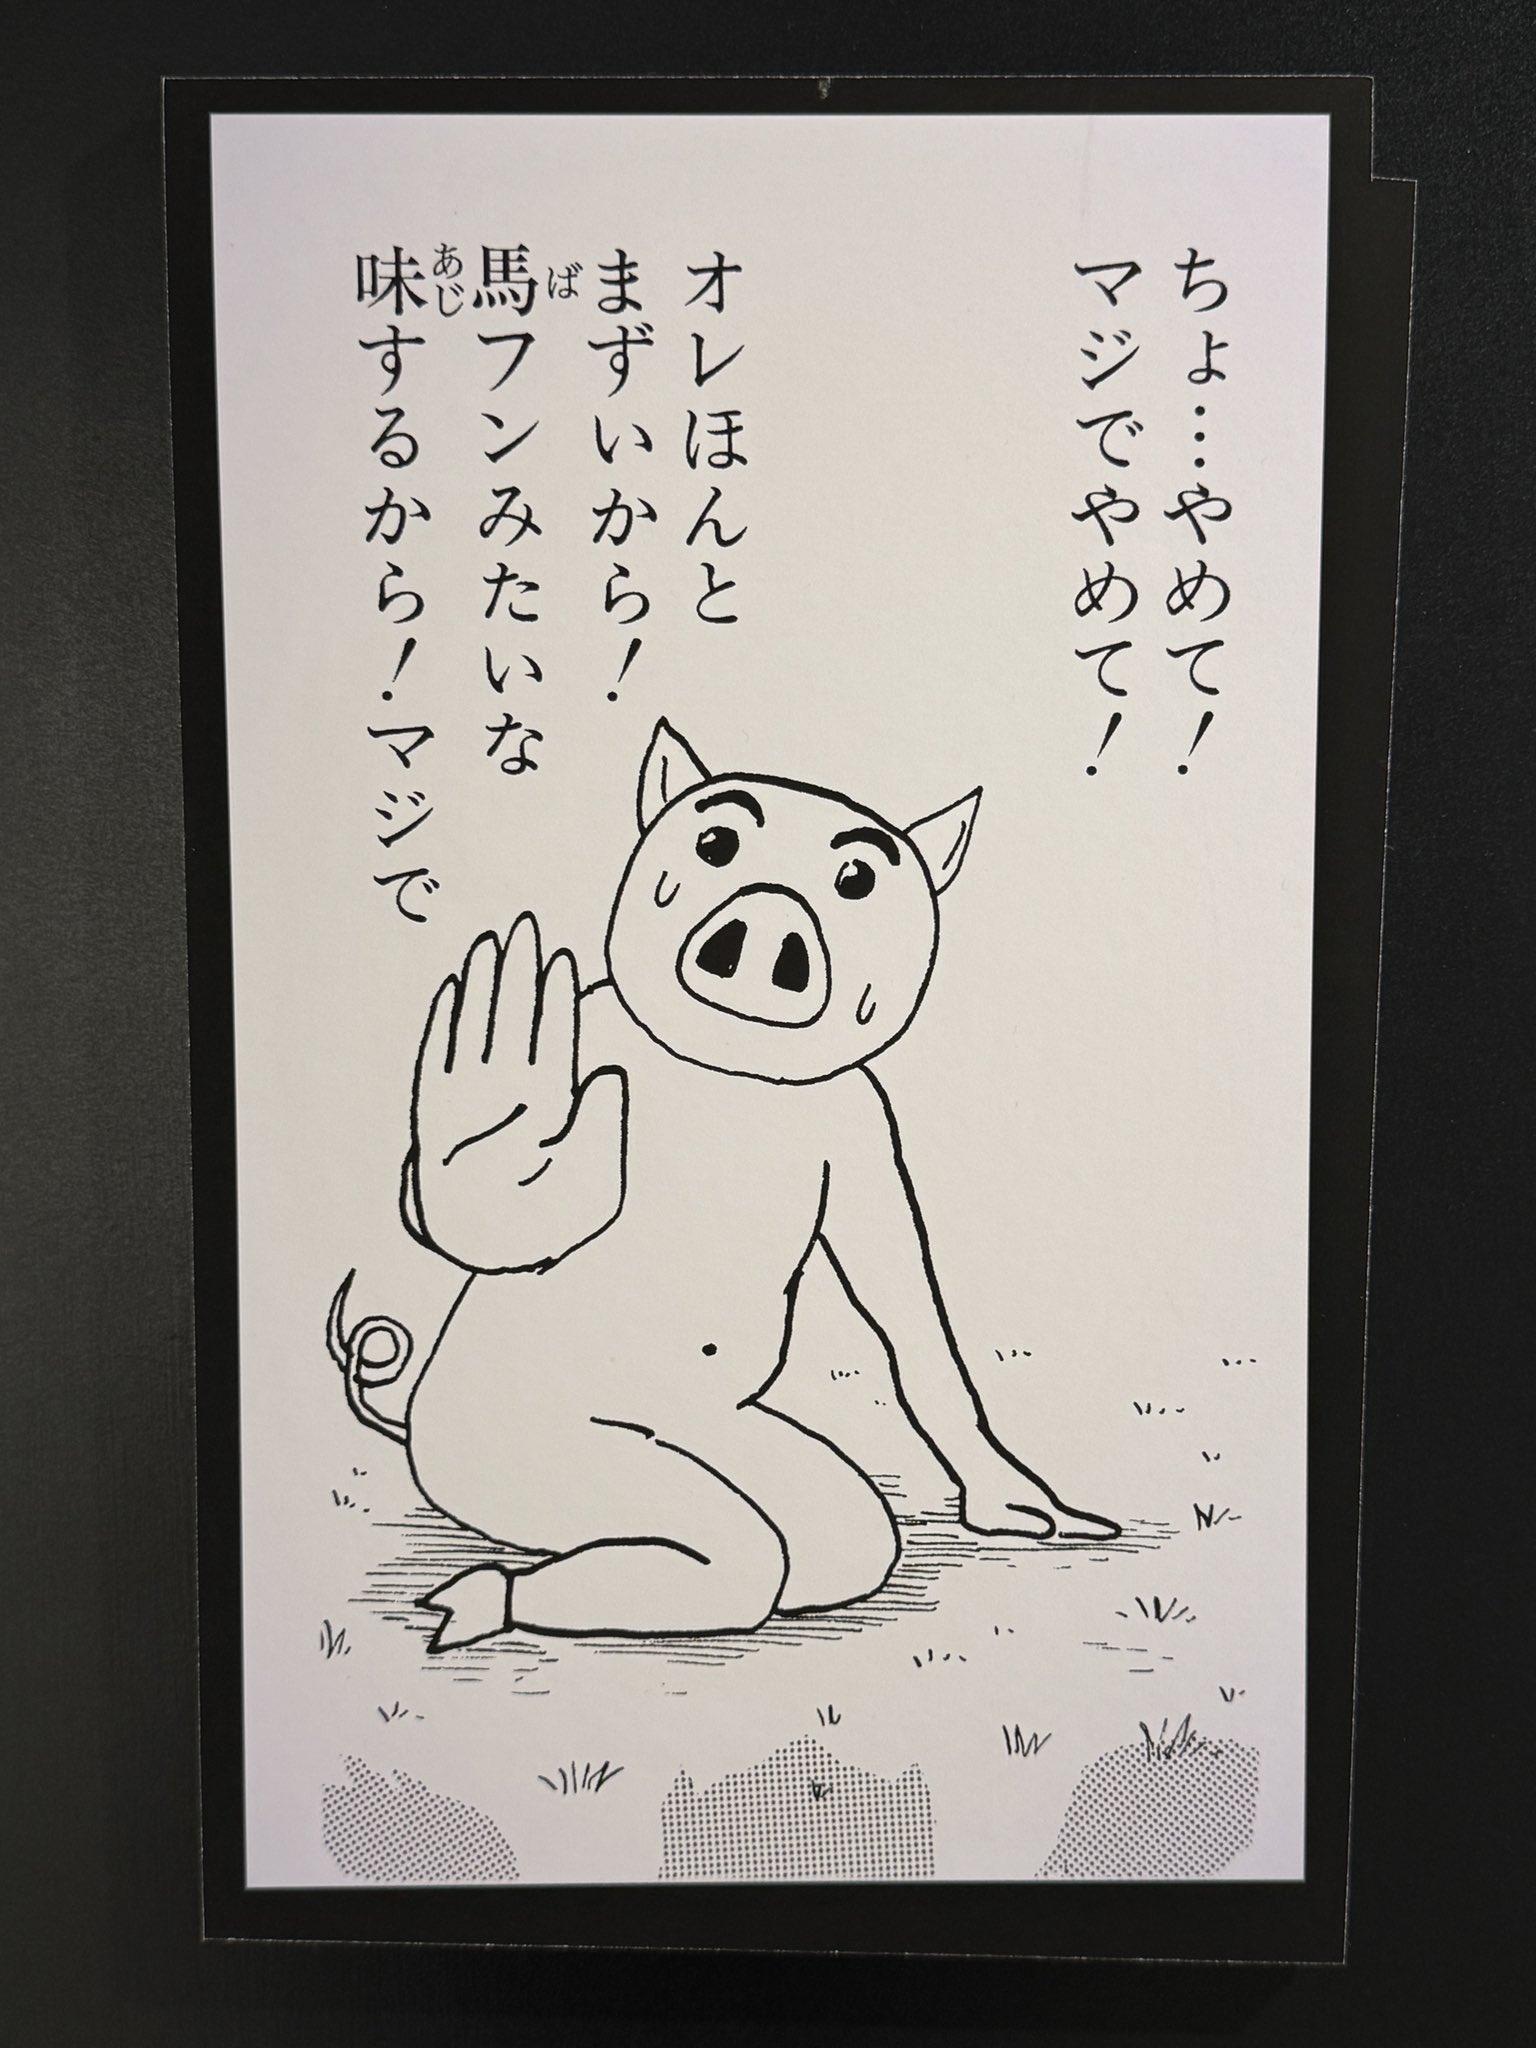 ちょ…やめて！
マジでやめて！
オレほんと
まずいから！
馬フンみたいな
味するから！マジで